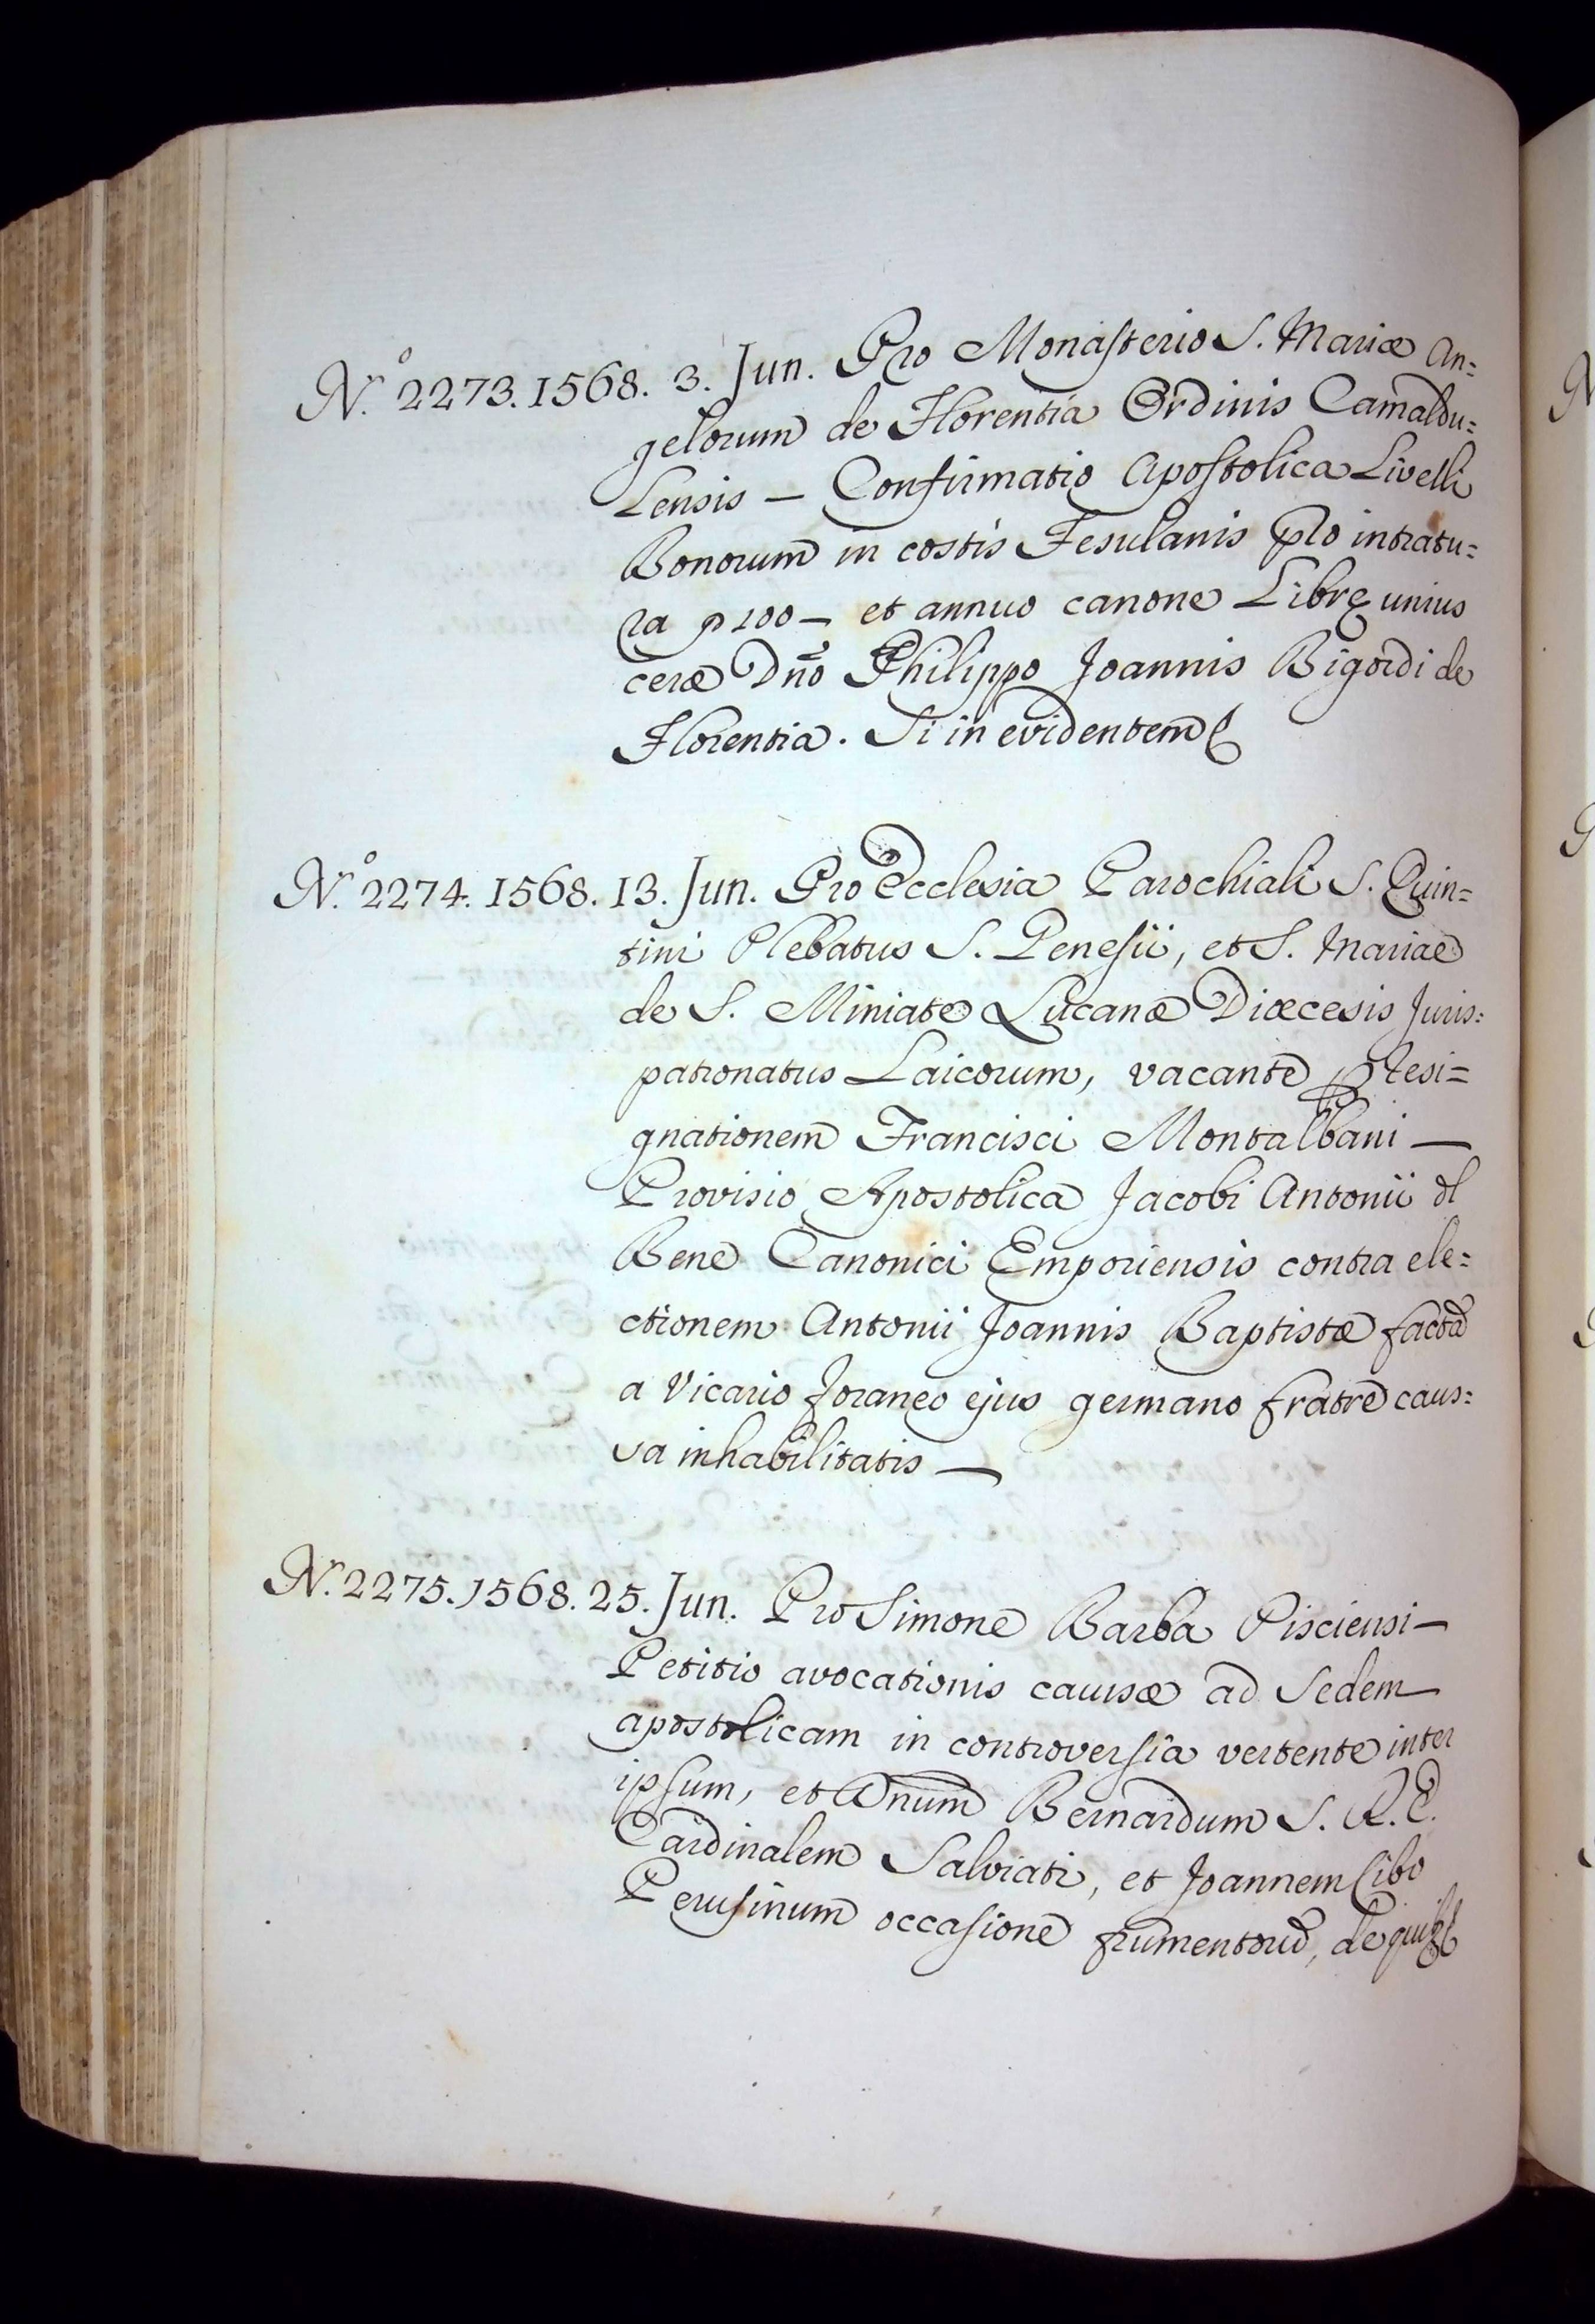 N.º 2273. 1568. 3. Jun. Pro Monasterio S. Mariæ An=
gelorum de Florentia Ordinis Camaldu=
Lensis – Confirmatio Apostolica Livelli
Bonorum in costis Fesulanis pro intratu=
ra p 100 – et annuo canone Librę unius
ceræ Dño Philippo Joannis Bigordi de
Florentia. Si in evidentem
N.º 2274. 1568. 13. Jun. Pro Ecclesia Parochiali S. Quin=
tini Plebatus S. Genesii, et S. Mariae
de S. Miniate Lucanæ Diœcesis Juris=
patronatus Laicorum, vacante p Resi=
gnationem Francisci Montalbani –
Provisio Apostolica Jacobi Antonii dl
Bene Canonici Emporiensis contra ele=
ctionem Antonii Joannis Baptistæ factã
a Vicario foraneo ejus germano fratre caus=
sa inhabilitatis –
N. 2275. 1568. 25. Jun. Pro Simone Barba Pisciensi –
Petitio avocationis causæ ad Sedem
apostolicam in controversia vertente inter
ipsum, et Dnum Bernardum S. R. E.
Cardinalem Salviati, et Joannem Cibo
Perusinum occasione frumentorũ, de